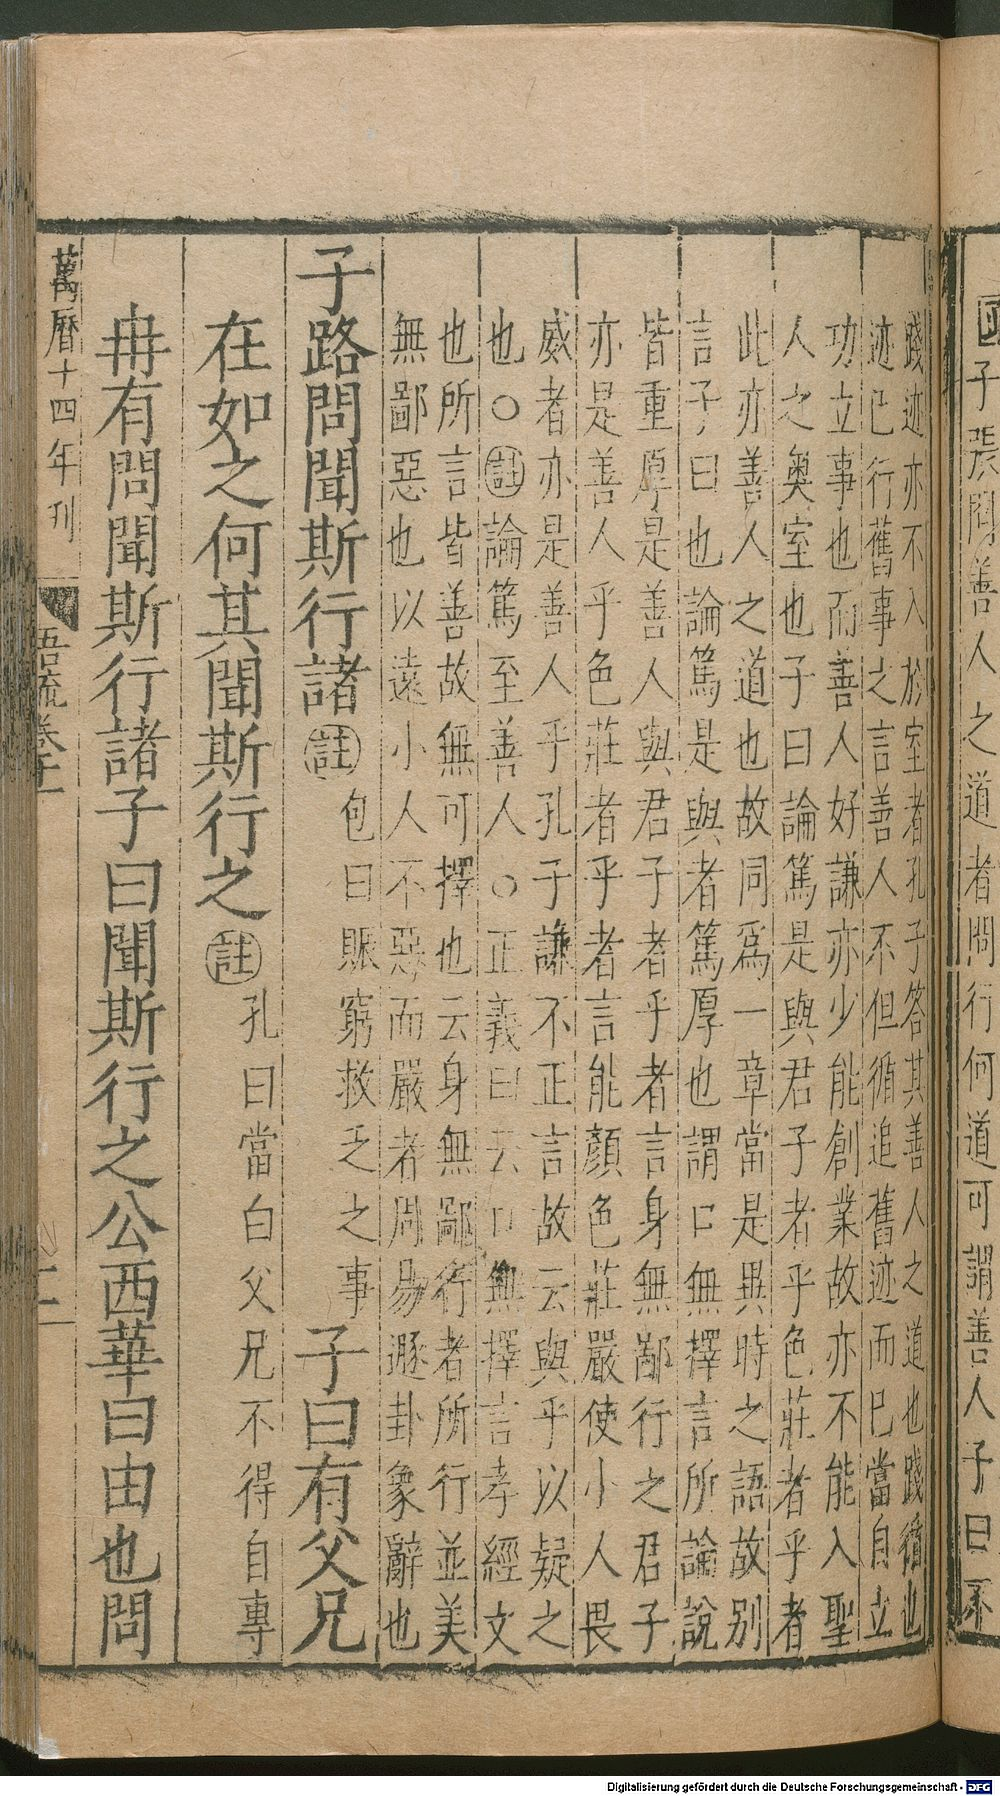 子張問善人之道者問行何道可謂善人子曰不
踐迹亦不入於室者孔子答其善人之道也踐循也
迹已行舊事之言善人不但循追舊迹而已當自立
功立事也而善人好謙亦少能創業故亦不能入聖
人之奧室也子曰論篤是與君子者乎色莊者乎者
此亦善人之道也故同爲一章當是異時之語故別
言子曰也論篤是與者篤厚也謂口無擇言所論說
皆重厚是善人與君子者乎者言身無鄙行之君子
亦是善人乎色莊者乎者言能顏色莊嚴使小人畏
威者亦是善人乎孔子謙不正言故云與乎以疑之
也○註論篤至善人○正義曰云口無擇言孝經文
也所言皆善故無可擇也云身無鄙行者所行並美
無鄙惡也以遠小人不惡而嚴者周易遯卦象辭也
子路問聞斯行諸註包曰賑窮救乏之事子曰有父兄
在如之何其聞斯行之註孔曰當白父兄不得自專
冉有問聞斯行諸子曰聞斯行之公西華曰由也問
萬曆十四年刊
吾疏卷十一
十二
Digitalisierung gefördert durch die Deutsche Forschungsgemeinschaft - DFG